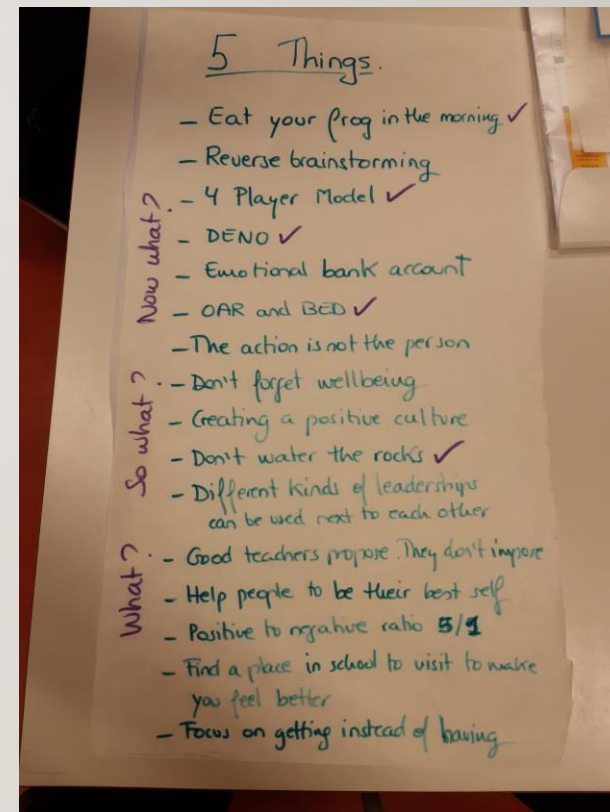 5 Things.
- Eat your frog in the morning ✓
- Reverse brainstorming
- 4 Player Model ✓
- DENO ✓
- Emotional bank account
- OAR and BED ✓
- The action is not the person
- Don't forget wellbeing
- Creating a positive culture
- Don't water the rocks ✓
- Different kinds of leaderships
can be used next to each other
- Good teachers propose. They don't impose
- Help people to be their best self
- Positive to negative ratio 5/1
- Find a place in school to visit to make
you feel better
- Focus on getting instead of having
What? So what? Now what?